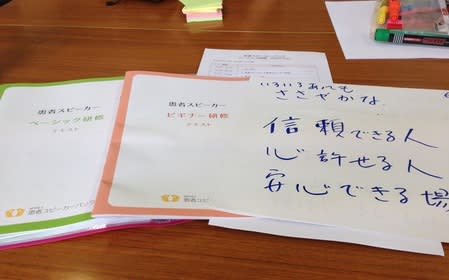 患者スピーカー
ベーシック研修
テキスト
患者スピーカーバンク
患者スピーカー
ビギナー研修
テキスト
患者スピーカ
いろいろあっても
ささやかな
信頼できる人
心許せる人
安心できる場